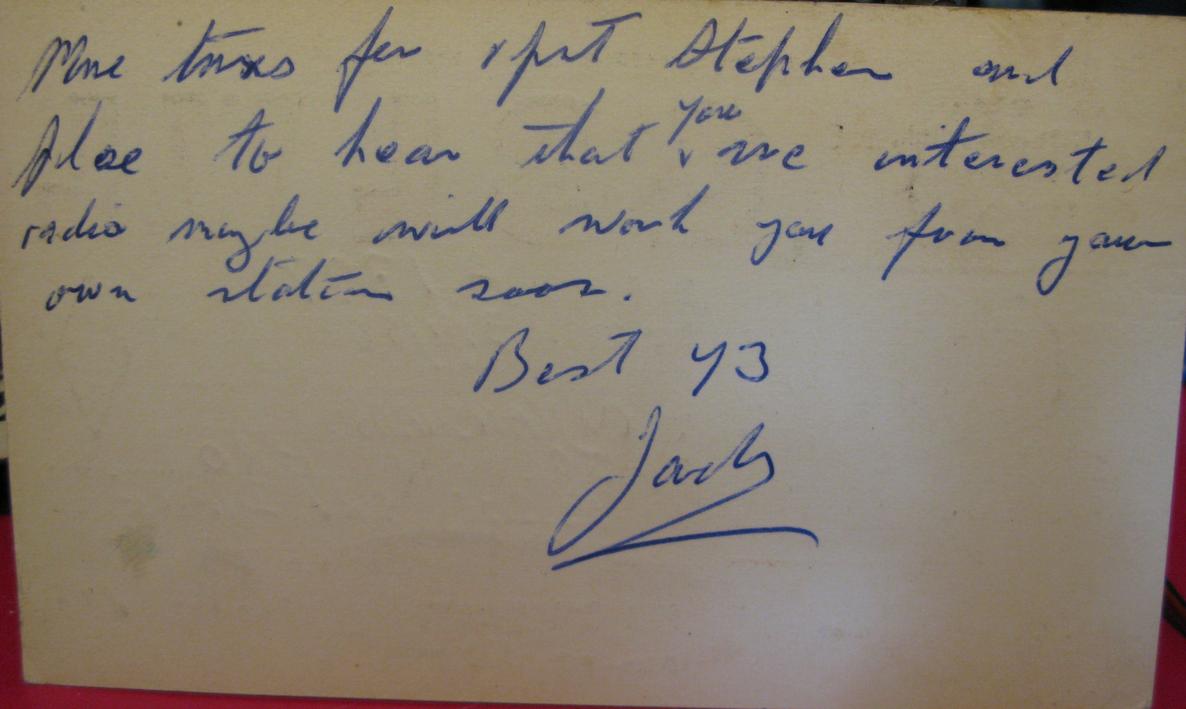 Mne tnxs fer rprt Stephen and
plse to hear that you are interested
radio maybe will work you from your
own station soon.
Best 73
Jack